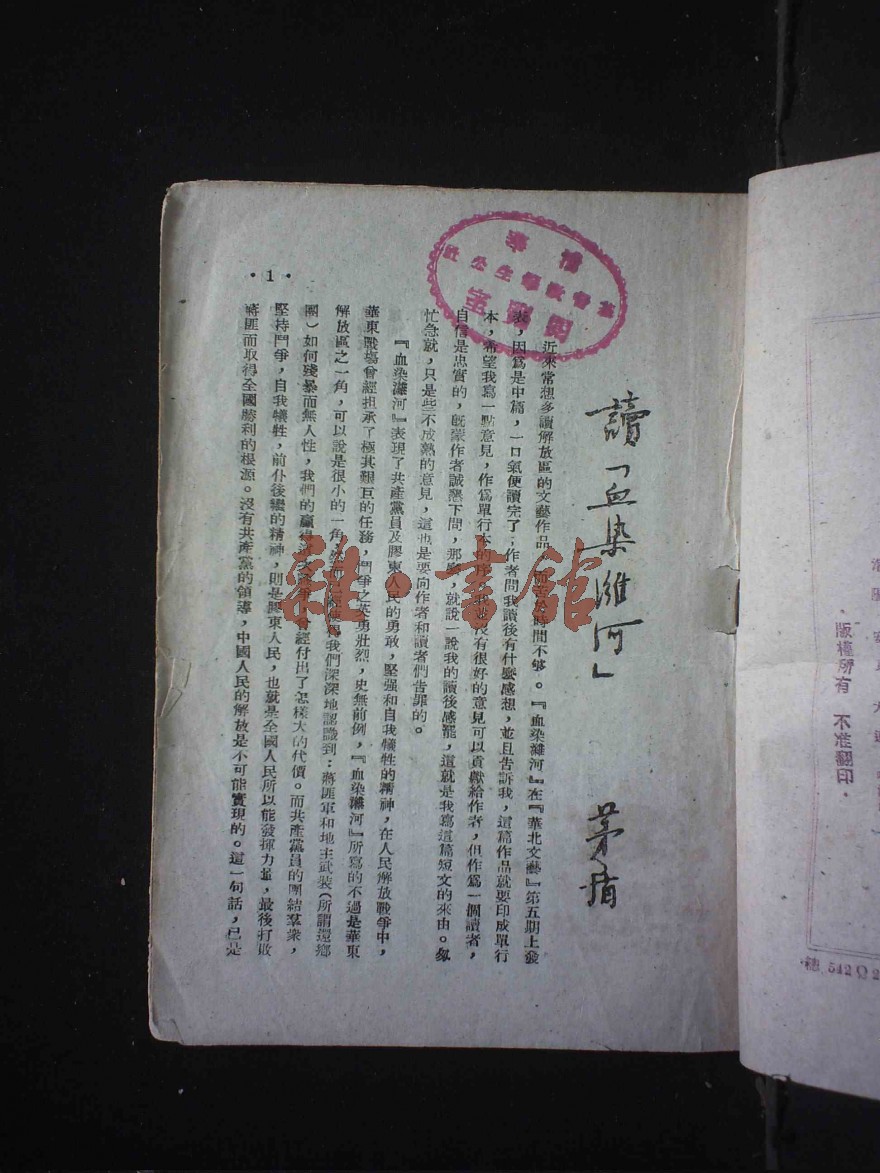 讀「血染濰河」
茅盾
近來常想多讀解放區的文藝作品，時間不够。『血染濰河』在『華北文藝』第五期上發
表，因爲是中篇，一口氣便讀完了；作者問我讀後有什麽感想，並且告訴我，這篇作品就要印成單行
本，希望我寫一點意見，作爲單行本的序。我並没有很好的意見可以貢獻給作者，但作爲一個讀者，
自信是忠實的，旣蒙作者誠懇下問，那麽，就說一說我的讀後感罷，這就是我寫這篇短文的來由。匆
忙急就，只是些不成熟的意見，這也是要向作者和讀者們告罪的。
『血染濰河』表現了共產黨員及膠東人民的勇敢，堅强和自我犧牲的精神，在人民解放戰爭中，
華東戰塲曾經担承了極其艱巨的任務，鬥爭之英勇壯烈，史無前例，『血染濰河』所寫的不過是華東
解放區之一角，可以說是很小的一角，我們深深地認識到：蔣匪軍和地主武裝（所謂還鄉
團）如何殘暴而無人性，我們的贏得曾經付出了怎樣大的代價。而共產黨員的團結羣衆，
堅持鬥爭，自我犧牲，前仆後繼的精神，則是膠東人民，也就是全國人民所以能發揮力量，最後打敗
蔣匪而取得全國勝利的根源。沒有共產黨的領導，中國人民的解放是不可能實現的。這一句話，已是
·1·
版權所有 不准翻印·
總 542
雜·書館